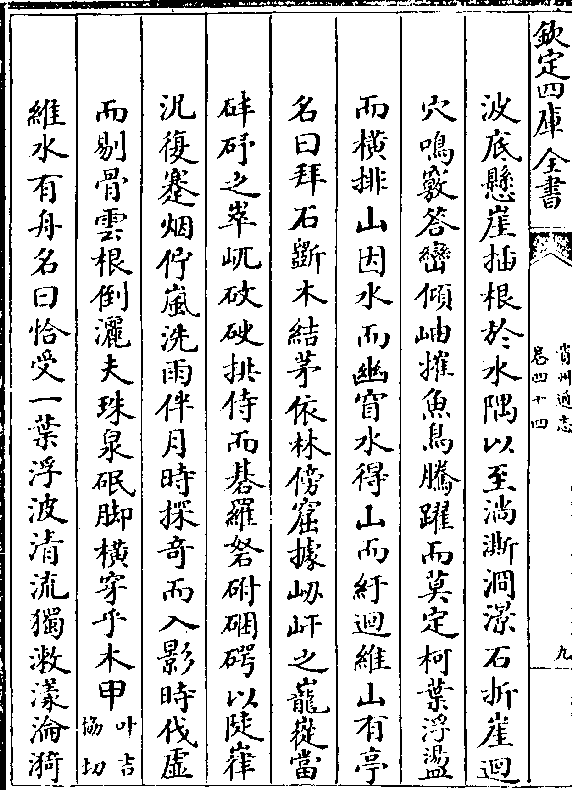 欽定四庫全書
貴州通志
卷四十四
九
波底懸崖插根於水隅以至淌澌洞漯石折崖迴
穴鳴竅答巒傾岫摧魚鳥騰躍而莫定柯葉浮盪
而横排山因水而幽窅水得山而紆迴維山有亭
名曰拜石斷木結茅依林傍窟據屻屽之巃嵸當
硉矹之崒屼砇硬拱侍而碁羅砮砆硱碍以陡嵂
况復蹇烟佇嵐洗雨伴月時探奇而入影時伐虚
而剔骨雲根倒灑夫珠泉砇脚横穿乎木甲叶古協切
維水有舟名曰恰受一葉浮波清流獨漱漾淪漪